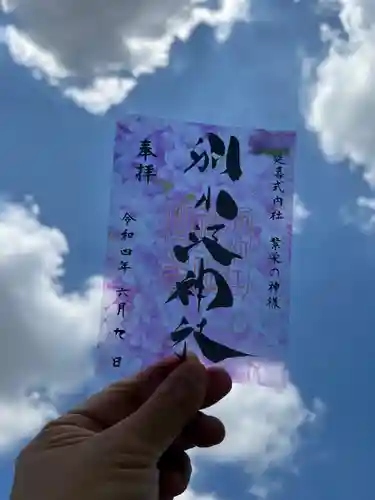 延喜式内社 繁栄の神様
別小江神社
奉拝
令和四年 六月九日